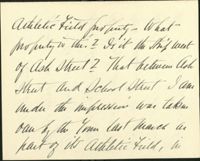 Athletic Field property – What
property is this? Is it the strip west
of Ash Street? That between Ash
Street and School Street I am
under the impression was taken
over by the Town last March as
part of the Athletic Field, in